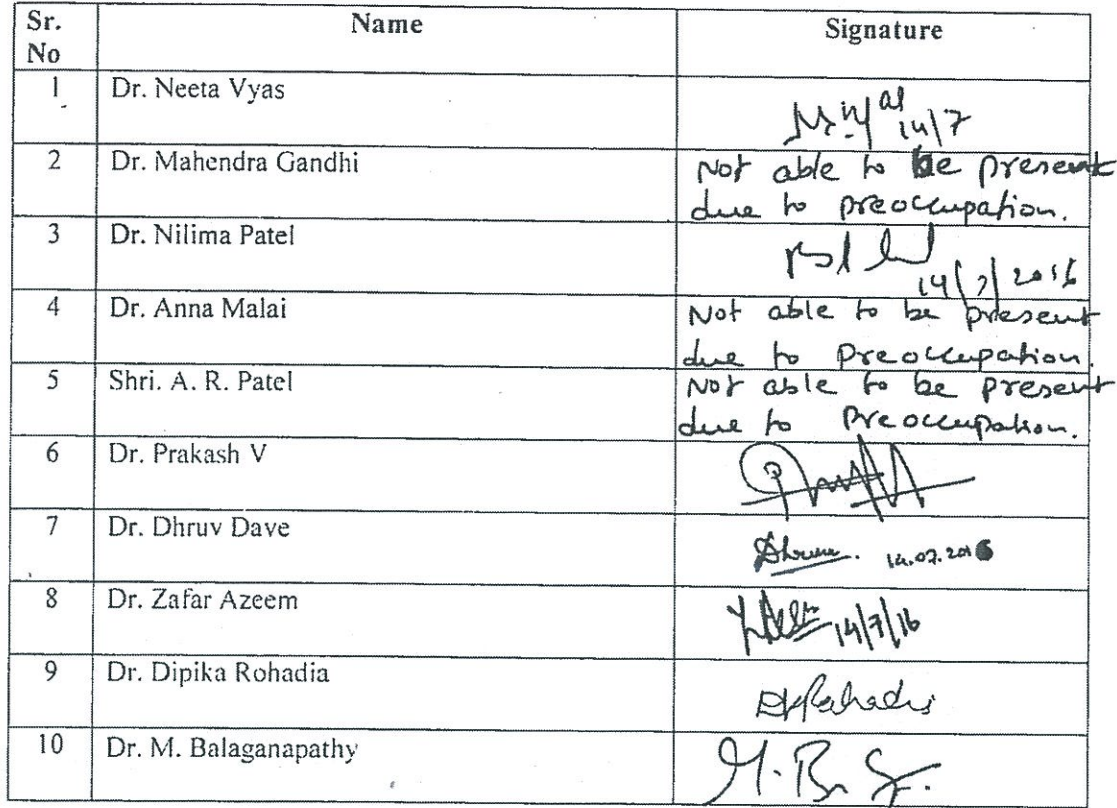 Sr. No Name Signature
1 Dr. Neeta Vyas 14/7
2 Dr. Mahendra Gandhi Not able to be present
due to preoccupation.
3 Dr. Nilima Patel 14/7/2016
4 Dr. Anna Malai Not able to be present
due to Preoccupation.
5 Shri. A. R. Patel Not able to be present
due to Preoccupation.
6 Dr. Prakash V
7 Dr. Dhruv Dave Dhruv. 14.07.2016
8 Dr. Zafar Azeem 14/7/16
9 Dr. Dipika Rohadia
10 Dr. M. Balaganapathy